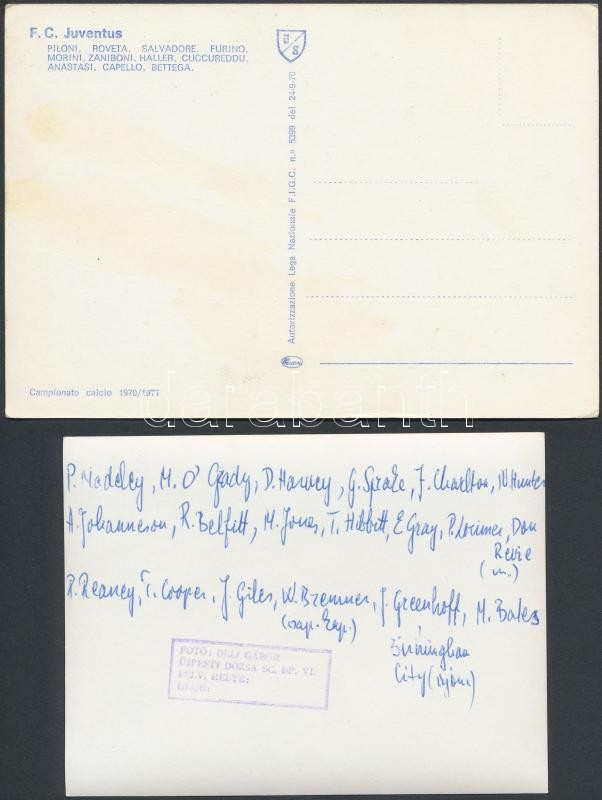 F. C. Juventus
PILONI, ROVETA, SALVADORE, FURINO,
MORINI, ZANIBONI, HALLER, CUCCUREDDU,
ANASTASI, CAPELLO, BETTEGA.
Autorizzazione Lega Nazionale F.I.G.C. n.º 5399 del 24-9-70
Campionato calcio 1970/1971
darabanth
P. Madeley, M. O' Grady, D. Harvey, G. Sprake, J. Charlton, N. Hunter
A. Johanneson, R. Belfitt, M. Jones, T. Hibbitt, E. Gray, P. Lorimer, Don
Revie
(m.)
P. Reaney, T. Cooper, J. Giles, W. Bremner, J. Greenhoff, M. Bates
Birmingham
City
FOTO: DELI GÁBOR
ÚJPESTI DÓZSA SC. BP. VI.
FELV. HELYE: